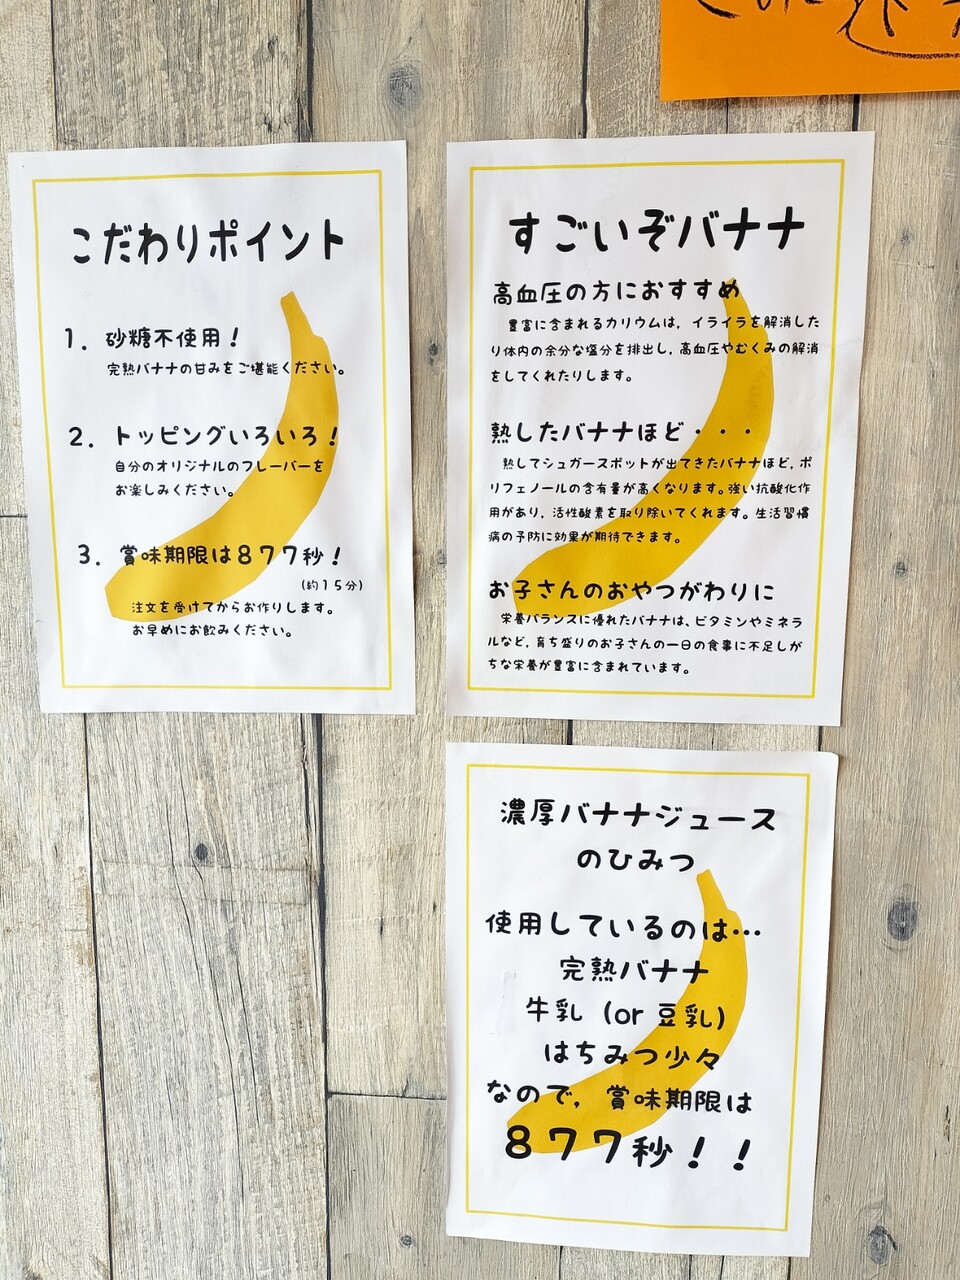 こだわりポイント
1. 砂糖不使用！
完熟バナナの甘みをご堪能ください。
2. トッピングいろいろ！
自分のオリジナルのフレーバーを
お楽しみください。
3. 賞味期限は877秒！
(約15分)
注文を受けてからお作りします。
お早めにお飲みください。
すごいぞバナナ
高血圧の方におすすめ
豊富に含まれるカリウムは，イライラを解消した
り体内の余分な塩分を排出し，高血圧やむくみの解消
をしてくれたりします。
熟したバナナほど・・・
熟してシュガースポットが出てきたバナナほど，ポ
リフェノールの含有量が高くなります。強い抗酸化作
用があり，活性酸素を取り除いてくれます。生活習慣
病の予防に効果が期待できます。
お子さんのおやつがわりに
栄養バランスに優れたバナナは、ビタミンやミネラ
ルなど，育ち盛りのお子さんの一日の食事に不足しが
ちな栄養が豊富に含まれています。
濃厚バナナジュース
のひみつ
使用しているのは…
完熟バナナ
牛乳（or 豆乳）
はちみつ少々
なので，賞味期限は
877秒！！